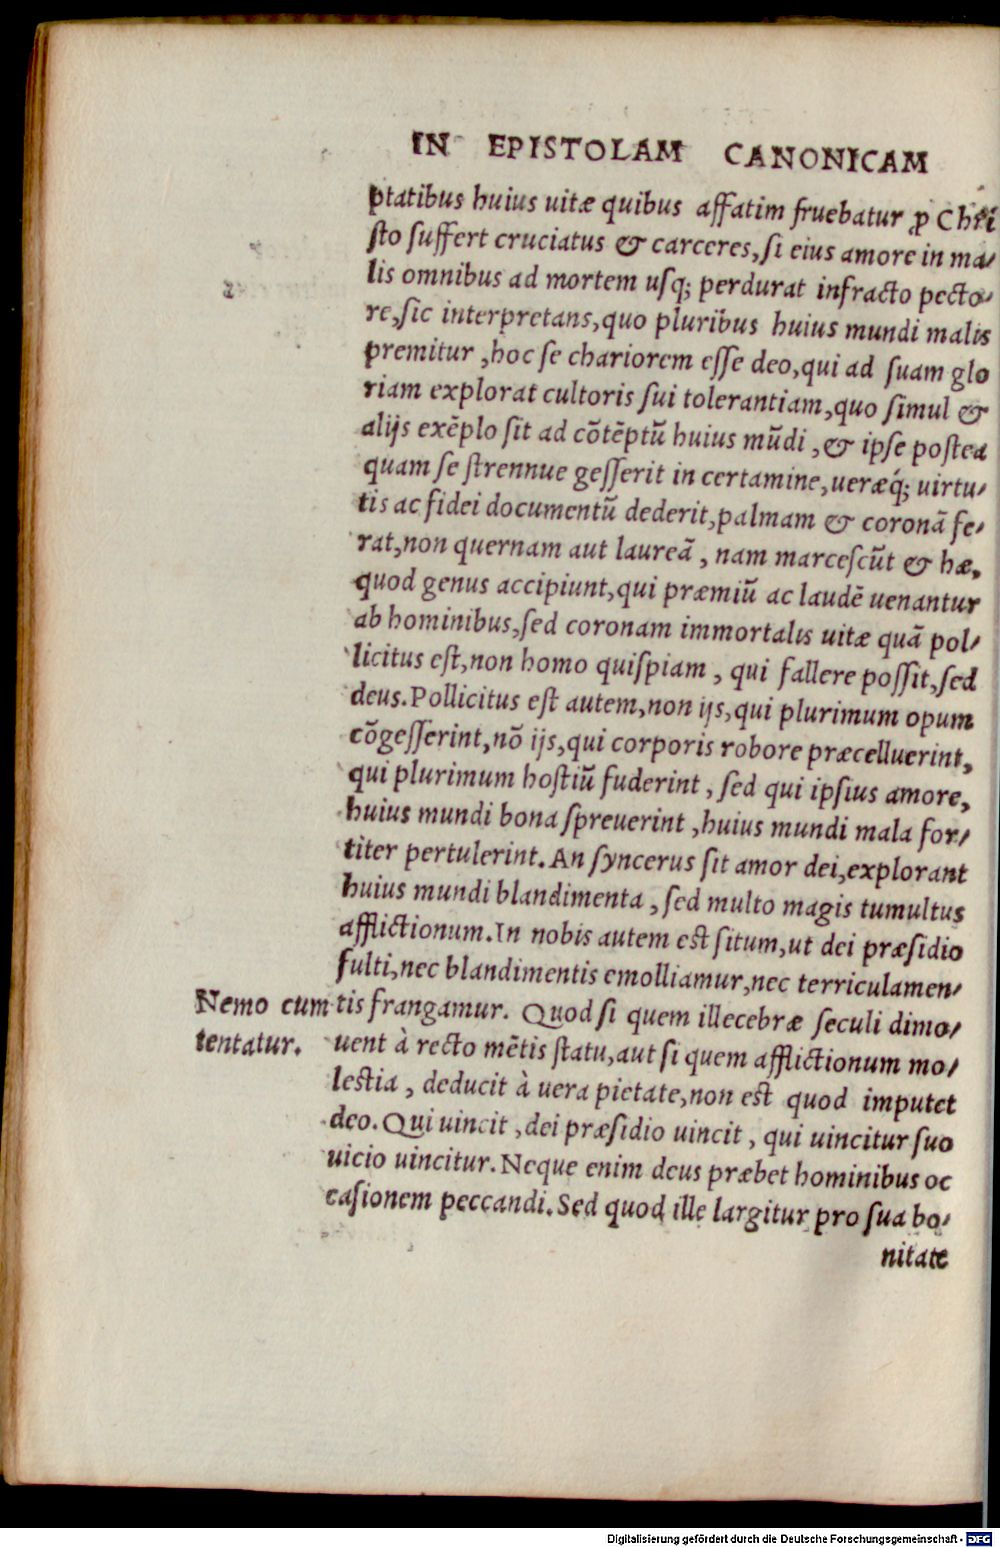 IN EPISTOLAM CANONICAM
ptatibus huius uitæ quibus affatim fruebatur ꝓ Chri
sto suffert cruciatus & carceres, si eius amore in ma/
lis omnibus ad mortem usq; perdurat infracto pecto/
re, sic interpretans, quo pluribus huius mundi malis
premitur, hoc se chariorem esse deo, qui ad suam glo
riam explorat cultoris sui tolerantiam, quo simul &
alijs exẽplo sit ad cõtẽptũ huius mũdi, & ipse postea
quam se strennue gesserit in certamine, ueræq́; uirtu/
tis ac fidei documentũ dederit, palmam & coronã fe/
rat, non quernam aut laureã, nam marcescũt & hæ,
quod genus accipiunt, qui præmiũ ac laudẽ uenantur
ab hominibus, sed coronam immortalis uitæ quã pol/
licitus est, non homo quispiam, qui fallere possit, sed
deus. Pollicitus est autem, non ijs, qui plurimum opum
cõgesserint, nõ ijs, qui corporis robore præcelluerint,
qui plurimum hostiũ fuderint, sed qui ipsius amore,
huius mundi bona spreuerint, huius mundi mala for/
titer pertulerint. An syncerus sit amor dei, explorant
huius mundi blandimenta, sed multo magis tumultus
afflictionum. In nobis autem est situm, ut dei præsidio
fulti, nec blandimentis emolliamur, nec terriculamen/
tis frangamur. Quod si quem illecebræ seculi dimo/
uent à recto mẽtis statu, aut si quem afflictionum mo/
lestia, deducit à uera pietate, non est quod imputet
deo. Qui uincit, dei præsidio uincit, qui uincitur suo
uicio uincitur. Neque enim deus præbet hominibus oc
casionem peccandi. Sed quod ille largitur pro sua bo/
nitate
Nemo cum
tentatur.
Digitalisierung gefördert durch die Deutsche Forschungsgemeinschaft - DFG